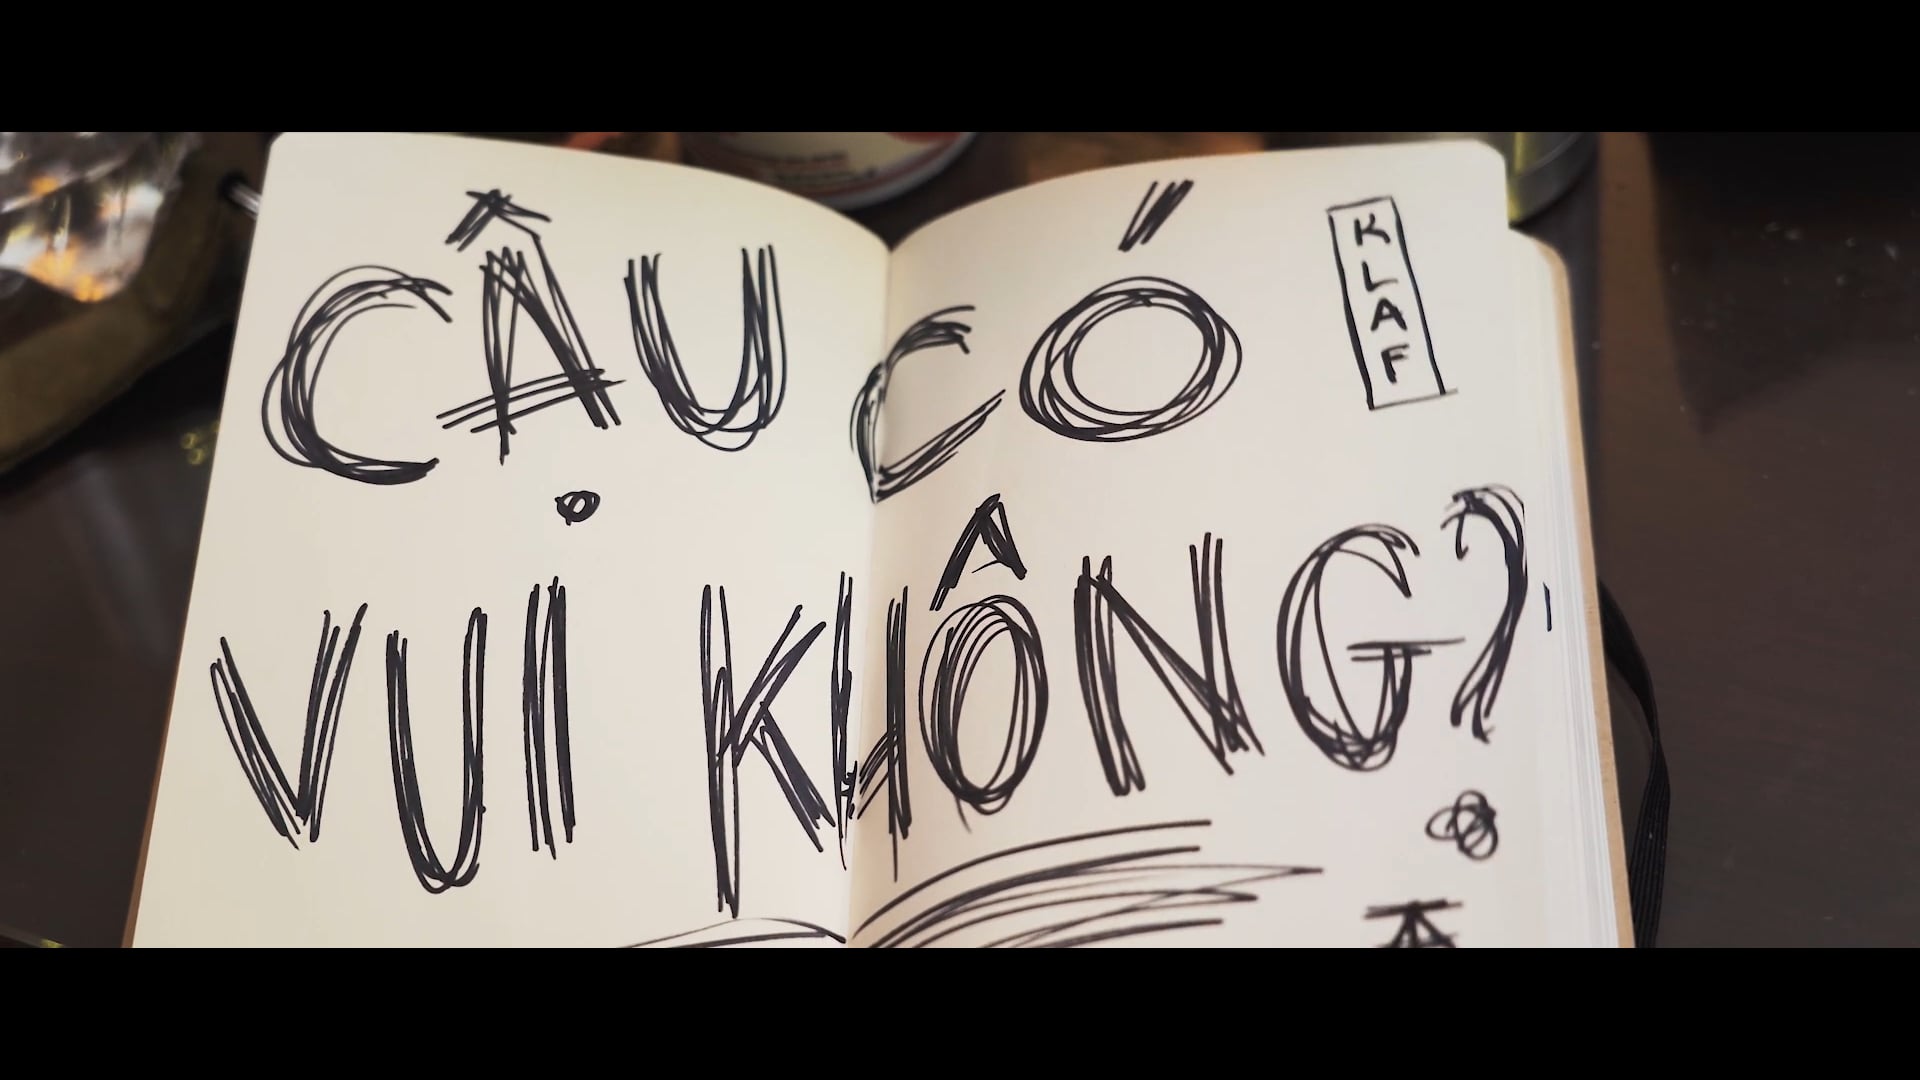 CẬU CÓ
VUI KHÔNG?
KLAF